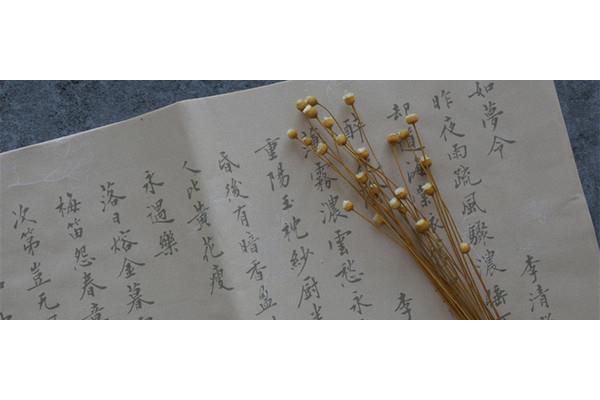 如夢令 李清
昨夜雨疏風驟濃
却道海棠依
醉 李
薄霧濃雲愁永
重陽玉枕紗厨半
昏後有暗香盈
人比黃花瘦
永遇樂
落日熔金暮
梅笛怨春意
次第豈无